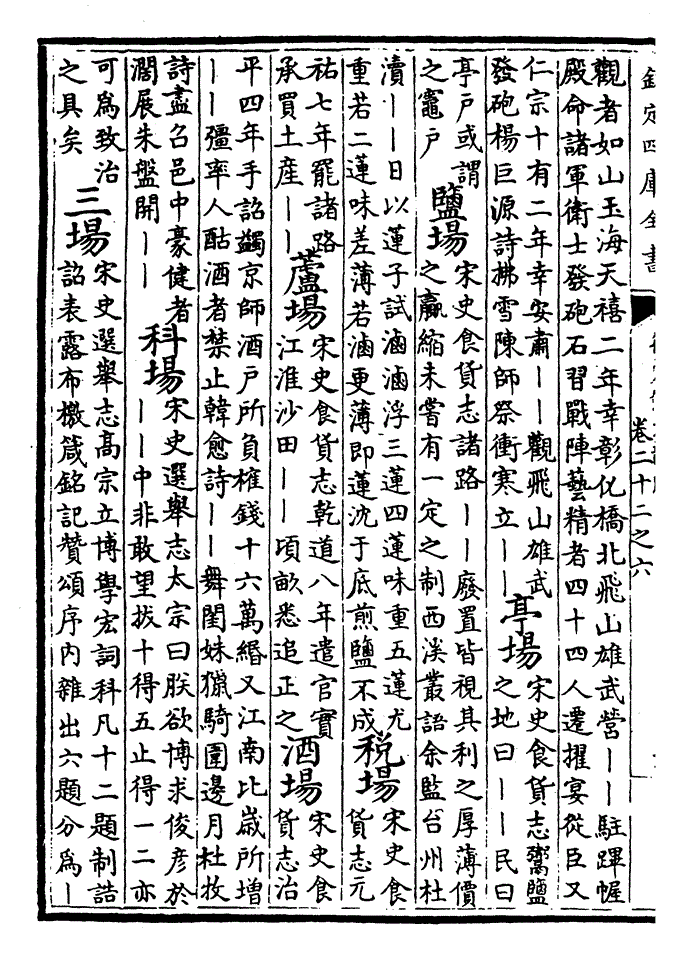 欽定四庫全書
卷二十二之六
觀者如山玉海天禧二年幸彰化橋北飛山雄武營——駐蹕幄
殿命諸軍衛士發砲石習戰陣藝精者四十四人遷擢宴從臣又
仁宗十有二年幸安肅——觀飛山雄武
發砲楊巨源詩拂雪陳師祭衝寒立——
亭場
宋史食貨志鬻鹽
之地曰——民曰
亭戸或謂
之竈戸
鹽場
宋史食貨志諸路——廢置皆視其利之厚薄價
之贏縮未嘗有一定之制西溪叢語余監台州杜
瀆——日以蓮子試滷滷浮三蓮四蓮味重五蓮尤
重若二蓮味差薄若滷更薄即蓮沈于底煎鹽不成
稅場
宋史食
貨志元
祐七年罷諸路
承買土産——
蘆場
宋史食貨志乾道八年遣官實
江淮沙田——頃畝悉追正之
酒場
宋史食
貨志治
平四年手詔蠲京師酒戸所負榷錢十六萬緡又江南比歳所增
——彊率人酤酒者禁止韓愈詩——舞閨姝獵騎圍邊月杜牧
詩盡召邑中豪健者
濶展朱盤開——
科場
宋史選舉志太宗曰朕欲博求俊彦於
——中非敢望拔十得五止得一二亦
可為致治
之具矣
三場
宋史選舉志高宗立博學宏詞科凡十二題制誥
詔表露布檄箴銘記贊頌序内雜出六題分為—